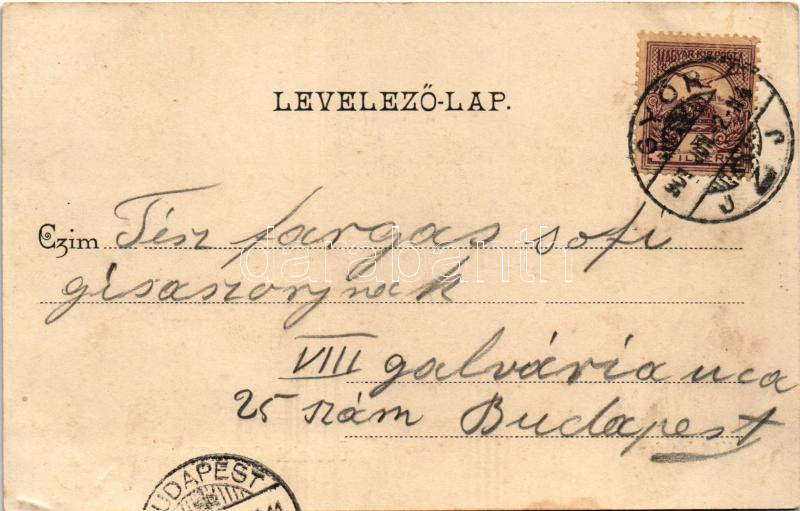 MAGYAR KIR. POSTA
LEVELEZŐ-LAP.
GYŐR
Czim Tész fargas sofi
darabanth
gisaszonynak
VIII galvária uca
25 szám Budapest
BUDAPEST